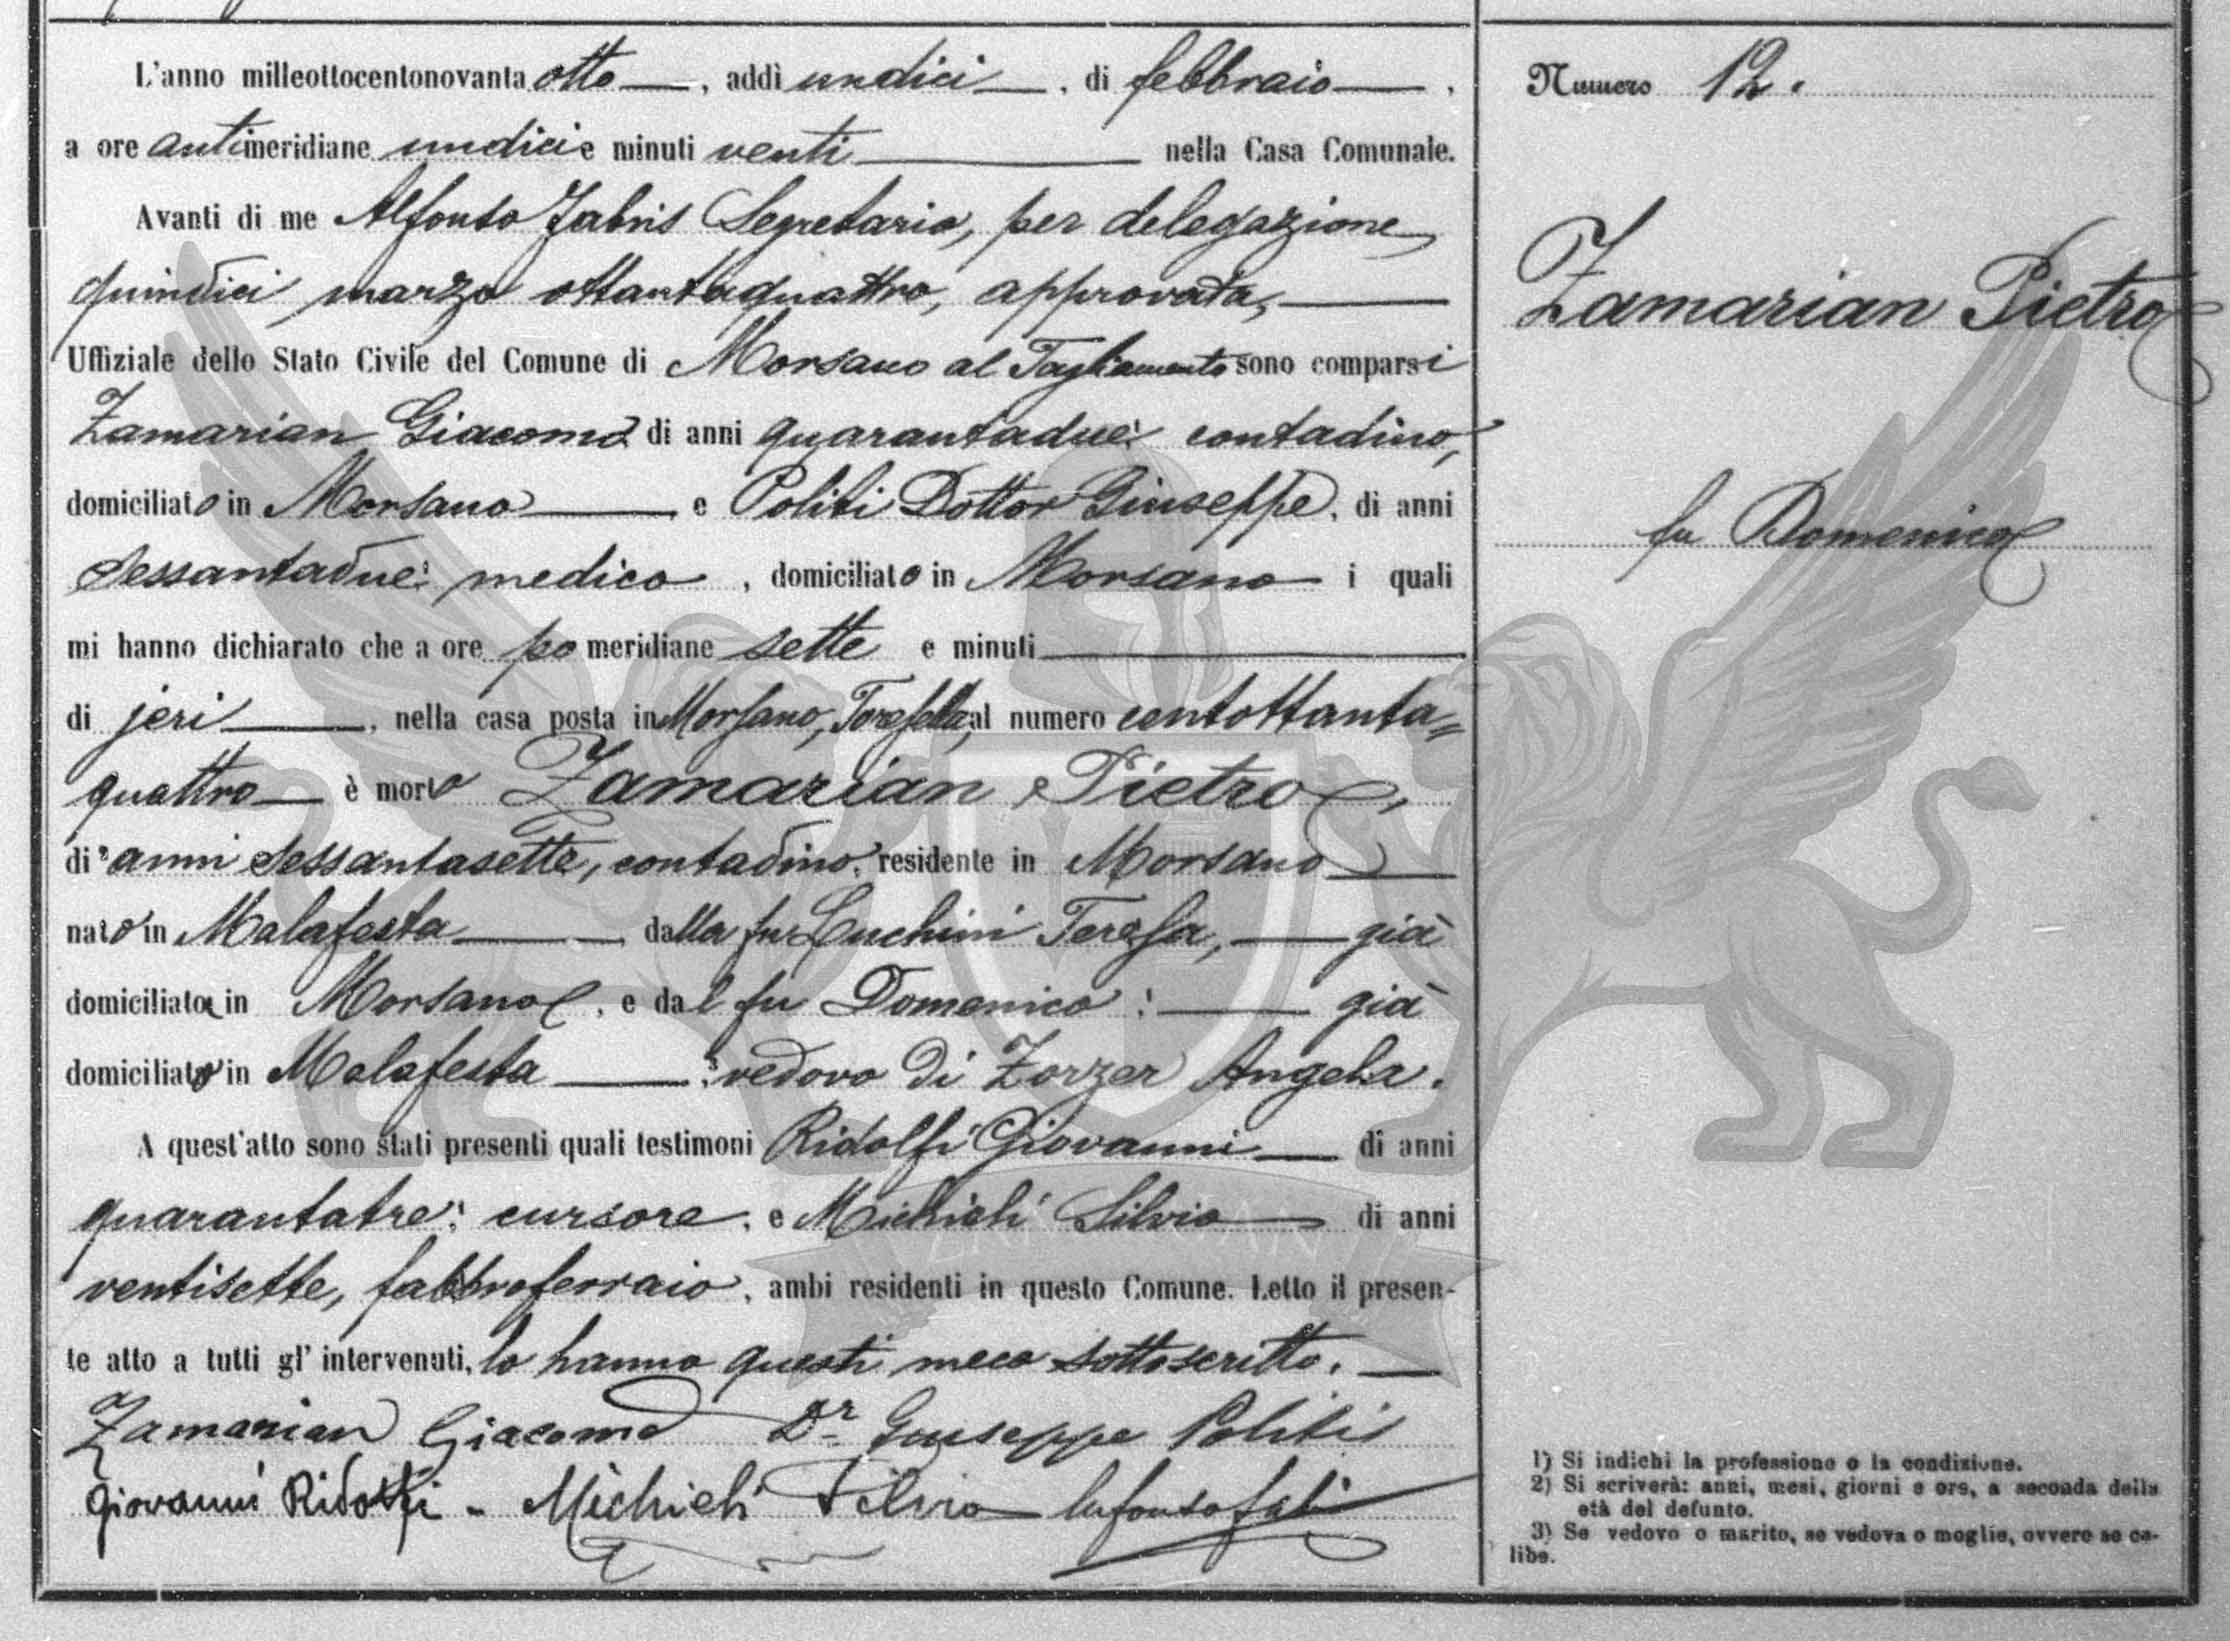 L'anno milleottocentonovanta otto, addì undici, di febbraio,
a ore antimeridiane undici e minuti venti nella Casa Comunale.
Avanti di me Alfonso Fabris Segretario, per delegazione
quindici marzo ottantaquattro, approvata,
Uffiziale dello Stato Civile del Comune di Morsano al Tagliamento sono comparsi
Zamarian Giacomo di anni quarantadue: contadino,
domiciliato in Morsano e Politi Dottor Giuseppe, di anni
sessantadue: medico, domiciliato in Morsano i quali
mi hanno dichiarato che a ore pomeridiane sette e minuti
di jeri, nella casa posta in Morsano, al numero centottanta=
quattro è morto Zamarian Pietro,
di anni sessantasette, contadino, residente in Morsano
nato in Malafesta dalla fu Luchini Teresa, già
domiciliata in Morsano, e dal fu Domenico: già
domiciliato in Malafesta: vedovo di Zorzer Angela.
A quest'atto sono stati presenti quali testimoni Ridolfi Giovanni di anni
quarantatre: cursore, e Michieli Silvio di anni
ventisette, fabbroferraio, ambi residenti in questo Comune. Letto il presen-
te atto a tutti gl'intervenuti, lo hanno questi meco sottoscritto.
Zamarian Giacomo Dr Giuseppe Politi
Giovanni Ridolfi - Michieli Silvio
Numero 12.
Zamarian Pietro
fu Domenico
1) Si indichi la professione o la condizione.
2) Si scriverà: anni, mesi, giorni e ore, a seconda della
età del defunto.
3) Se vedovo o marito, se vedova o moglie, ovvero se ce-
libe.